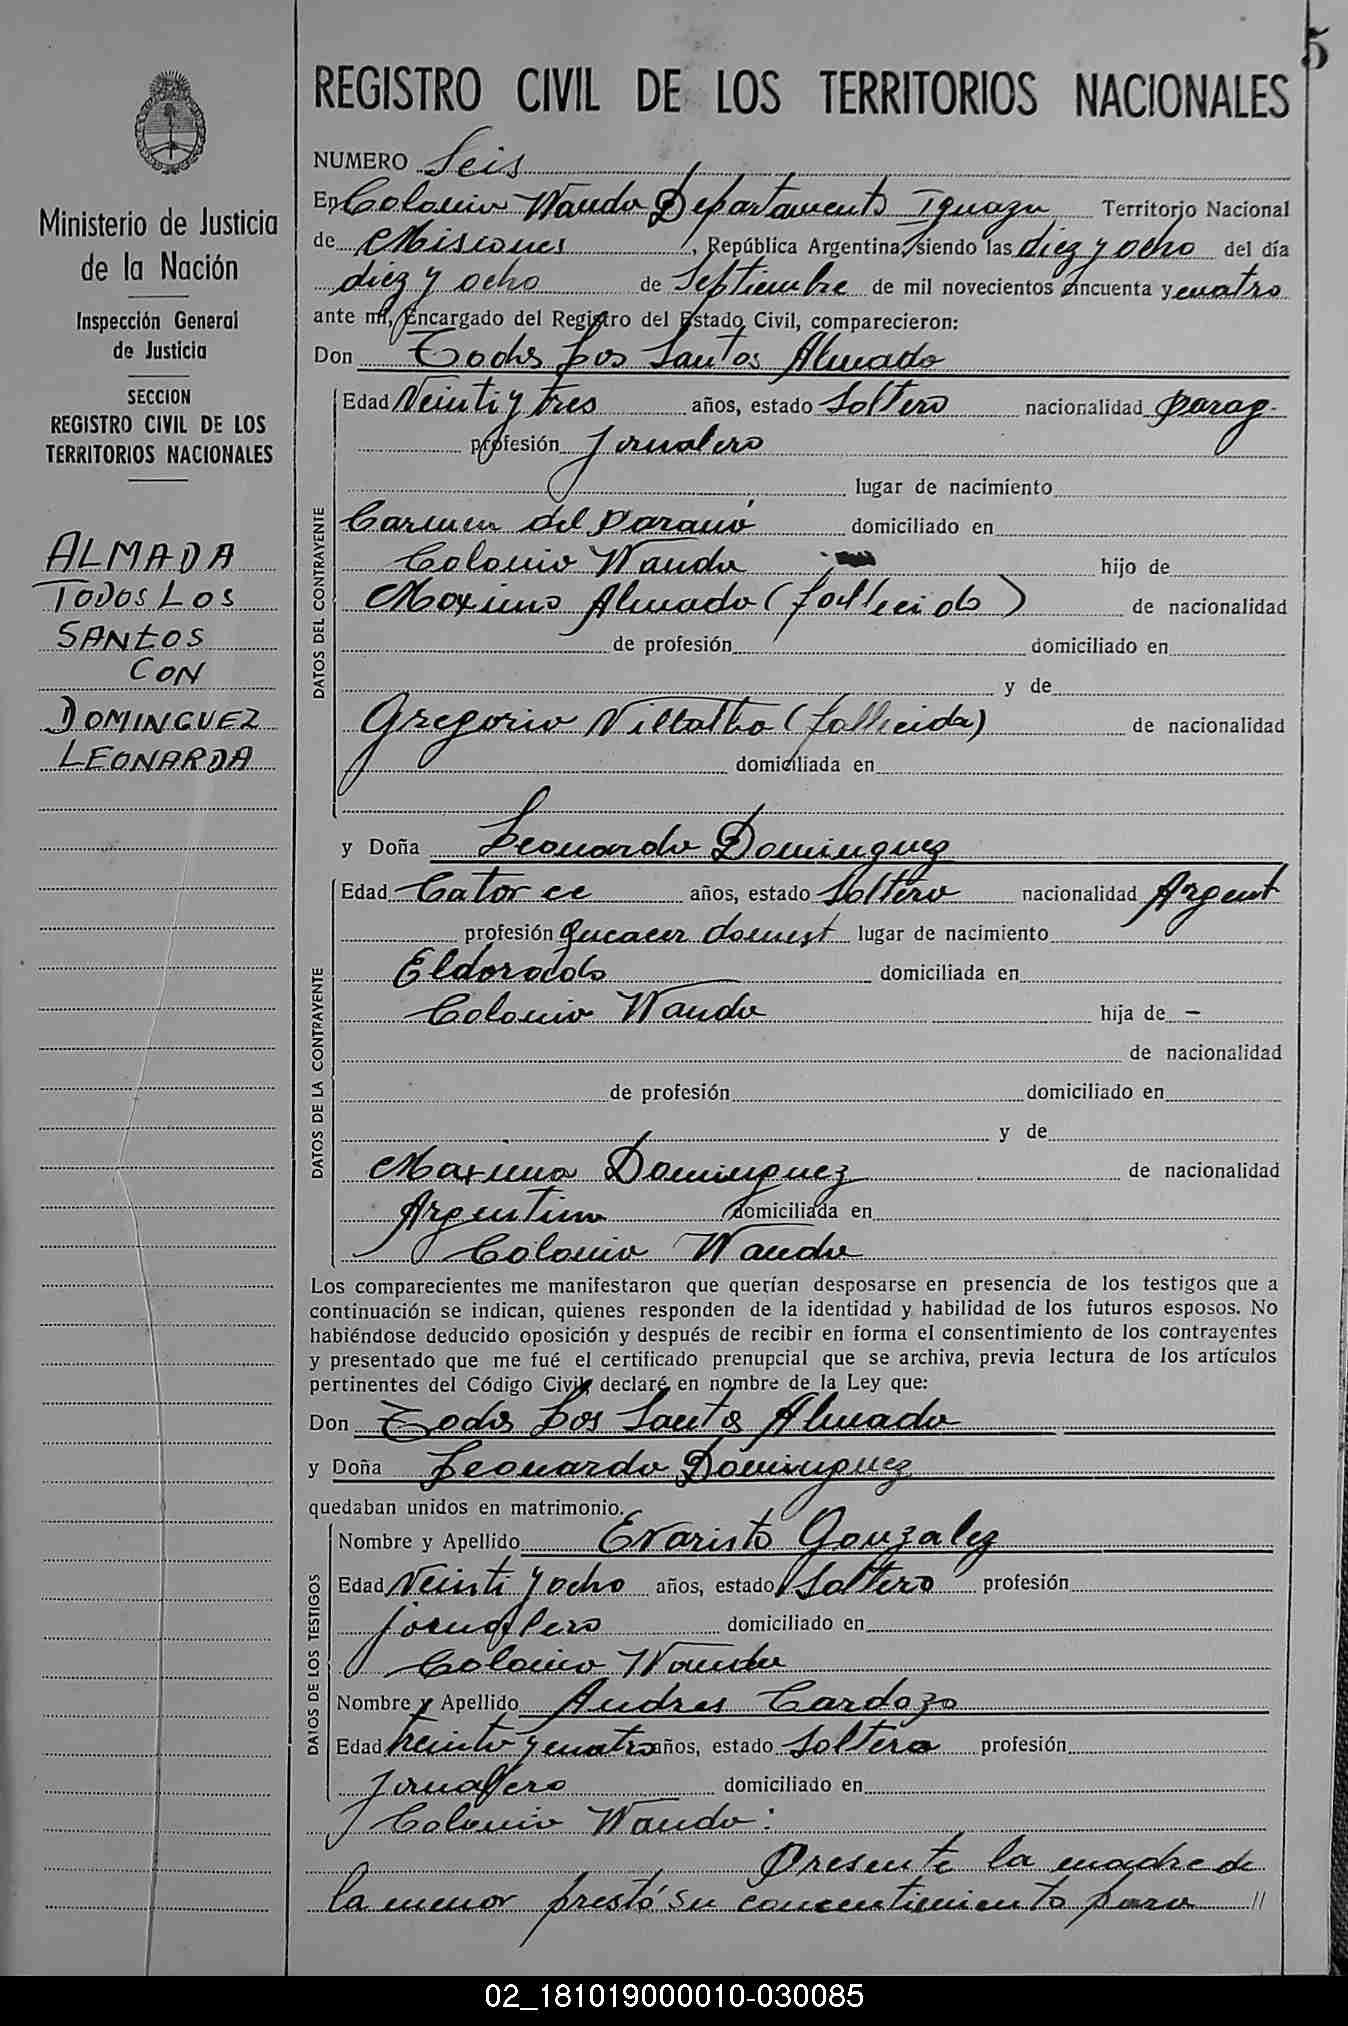 5
REGISTRO CIVIL DE LOS TERRITORIOS NACIONALES
Ministerio de Justicia
de la Nación
Inspección General
de Justicia
SECCION
REGISTRO CIVIL DE LOS
TERRITORIOS NACIONALES
ALMADA
TODOS LOS
SANTOS
CON
DOMINGUEZ
LEONARDA
NUMERO Seis
En Colonia Wanda Departamento Iguazu Territorio Nacional
de Misiones, República Argentina, siendo las diez y ocho del día
diez y ocho de Septiembre de mil novecientos cincuenta y cuatro
ante mí, Encargado del Registro del Estado Civil, comparecieron:
Don Todos Los Santos Almada
DATOS DEL CONTRAYENTE
Edad Veinti y tres años, estado Soltero nacionalidad Parag.
profesión Jornalero
lugar de nacimiento
Carmen del Paraná domiciliado en
Colonia Wanda hijo de
Maximo Almada (fallecido) de nacionalidad
de profesión domiciliado en
y de
Gregoria Villalba (fallecida) de nacionalidad
domiciliada en
y Doña Leonarda Dominguez
DATOS DE LA CONTRAYENTE
Edad Catorce años, estado Soltera nacionalidad Argent
profesión Queacer domest lugar de nacimiento
Eldorado domiciliada en
Colonia Wanda hija de -
de nacionalidad
de profesión domiciliado en
y de
Maxima Dominguez de nacionalidad
Argentina domiciliada en
Colonia Wanda
Los comparecientes me manifestaron que querían desposarse en presencia de los testigos que a
continuación se indican, quienes responden de la identidad y habilidad de los futuros esposos. No
habiéndose deducido oposición y después de recibir en forma el consentimiento de los contrayentes
y presentado que me fué el certificado prenupcial que se archiva, previa lectura de los artículos
pertinentes del Código Civil, declaré en nombre de la Ley que:
Don Todos Los Santos Almada
y Doña Leonarda Dominguez
quedaban unidos en matrimonio.
DATOS DE LOS TESTIGOS
Nombre y Apellido Evaristo Gonzalez
Edad Veinti y ocho años, estado Soltero profesión
jornalero domiciliado en
Colonia Wanda
Nombre y Apellido Andres Cardozo
Edad treinta y cuatro años, estado Soltero profesión
Jornalero domiciliado en
Colonia Wanda:
Presente la madre de
la menor prestó su concentimiento para //
02_181019000010-030085